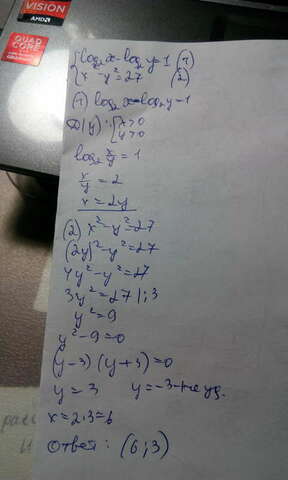 VISION
AMD
QUAD
CORE
{log₂x-log₂y=1 (1)
{x²-y²=27 (2)
(1) log₂x-log₂y=1
D(y): {x>0
{y>0
log₂ x/y = 1
x/y = 2
x=2y
(2) x²-y²=27
(2y)²-y²=27
4y²-y²=27
3y²=27 |:3
y²=9
y²-9=0
(y-3)(y+3)=0
y=3 y=-3-не уд.
x=2·3=6
Ответ: (6;3)